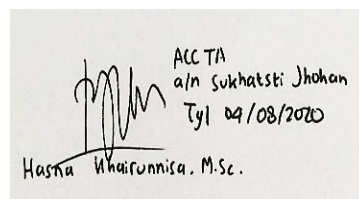 ACC TA
a/n Sukhatsti Jhohan
Tyl 04/08/2020
Hasna Khairunnisa. M.Sc.